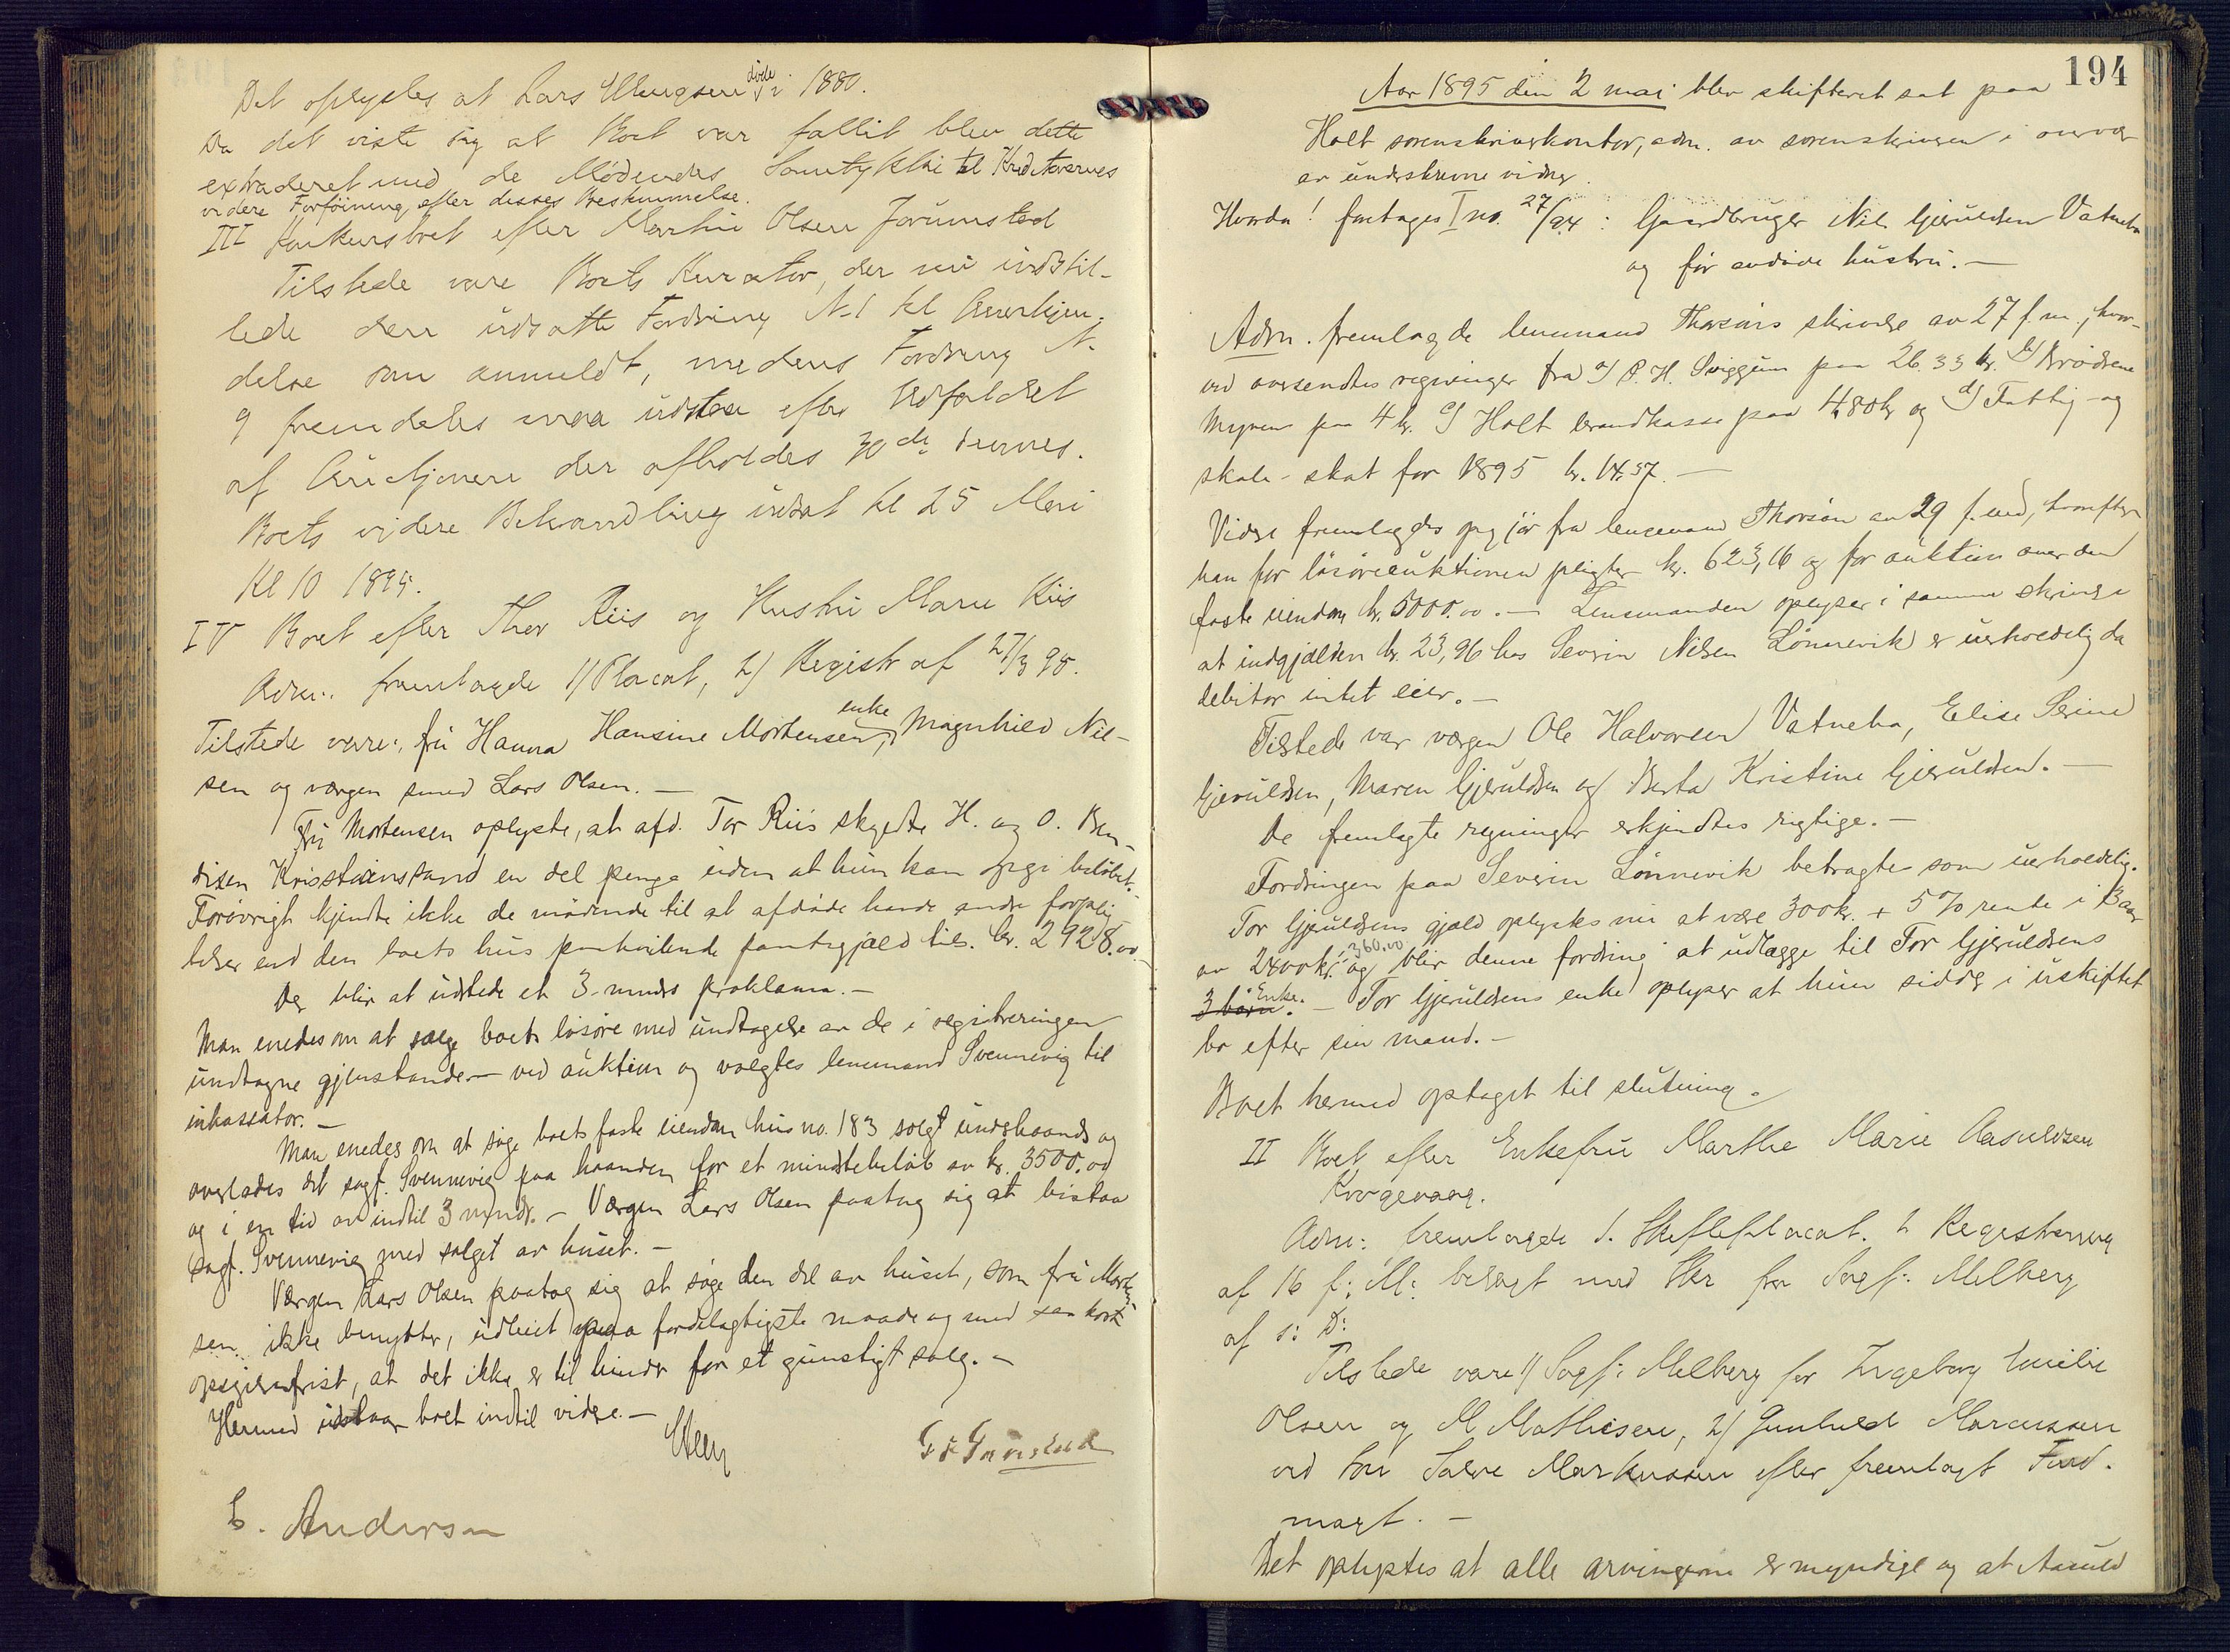 Det oplystes at Lars Ellingsen døde i 1880.
Da det viste sig at Boet var fallit blev dette
extraderet med de Mødendes Samtykke til Kreditorernes
videre Forføining efter disses Bestemmelse.
III Konkursboet efter Martin Olsen Jorunstad
Tilstede vare Boets Kurator, der nu indstil-
lede den udsatte Fordring N. 1 til Anerkjen-
delse som anmeldt, medens Fordring N.
9 fremdeles maa udstaa efter Udfaldet
af Auctionen der afholdes 30de dennes.
Boets videre Behandling udsat til 25 Mai
Kl 10 1895.
IV Boet efter Thor Riis og Hustru Maren Riis
Adm. fremlagde 1/ Placat, 2/ Registr af 27/3 95.
Tilstede vare: fru Hanna Hansine Mortensen, enke, Magnhild Nil-
sen og værgen smed Lars Olsen. —
Fru Mortensen oplyste, at afd. Tor Riis skyldte H. og O. Ben-
dixen Kristianssand en del penge uden at hun kan opgi beløbet.
Forøvrigt kjendte ikke de mødende til at afdøde havde andre forplig-
telser end den boets hus paahvilende pantegjæld tils. kr. 2928.00
Der blir at udstede et 3 mnds proklama. —
Man enedes om at sælge boets løsøre med undtagelse av de i registreringen
undtagne gjenstande — ved auktion og valgtes lensmand Svennevig til
inkassator. —
Man enedes om at søge boets faste eiendom hus no. 183 solgt underhaands og
overlades det sagf. Svennevig paa haanden for et mindstebeløb av kr. 3500.00
og i en tid av indtil 3 mndr. — Værgen Lars Olsen paatog sig at bistaa
sagf. Svennevig med salget av huset. —
Værgen Lars Olsen paatog sig at søge den del av huset, som fru Morten-
sen ikke benytter, udleiet paa fordelagtigste maade og med saa kort
opsigelsesfrist, at det ikke er til hinder for et gunstigt salg. —
Hermed udstaar boet indtil videre. —
Steen
E. Andersen
194
Aar 1895 den 2 mai blev skifteret sat paa
Holt sorenskriverkontor, adm. av sorenskriveren i overvær
av underskrevne vidner.
Hvorda! foretages I no. 27/94: Gaardbruger Nils Gjeruldsen Vatnebo
og før avdøde hustru. —
Adm. fremlagde lensmand Thorsøns skrivelse av 27 f. m., hvor-
ved oversendtes regninger fra a/ P. H. Sviggum paa 26.33 kr. b/ Brødrene
Myren paa 4 kr. c/ Holt brandkasse paa 4.80 kr og d/ Fattig- og
skole-skat for 1895 kr. 14.57. —
Videre fremlagdes opgjør fra lensmand Thorsøn av 29 f. mnd, hvorefter
han for løsøreauktionen pligter kr. 623,16 og for auktion over den
faste eiendom kr. 5000.00. — Lensmanden oplyser i samme skrivelse
at indgjælden kr. 23,96 hos Severin Nilsen Lønnevik er uerholdelig da
debitor intet eier. —
Tilstede var værgen Ole Halvorsen Vatnebo, Elise Serine
Gjeruldsen, Maren Gjeruldsen og Berta Kristine Gjeruldsen. —
De fremlagte regninger erkjendtes rigtige. —
Fordringen paa Severin Lønnevik betragtes som uerholdelig.
Tor Gjeruldsens gjæld oplystes nu at være 300 kr. + 5 % rente i
av 2400 kr. : 360.00 og blir denne fordring at udlægge til Tor Gjeruldsens
3 børn. Enke. — Tor Gjeruldsens enke oplyser at hun sidder i uskiftet
bo efter sin mand. —
Boet hermed optaget til slutning.
II Boet efter Enkefru Marthe Marie Aasuldsen
Krogevaag.
Adm: fremlagde 1. Skifteplacat. 2 Registrering
af 16 f: M: belagt med Skr fra Sagf: Melberg
af s: D:
Tilstede vare 1/ Sagf: Melberg for Ingeborg Emilie
Olsen og M. Mathisen, 2/ Gunhild Marcussen
ved Søn Salve Markussen efter fremlagt Fuld-
magt. —
Det oplystes at alle arvingerne er myndige og at Aasuld